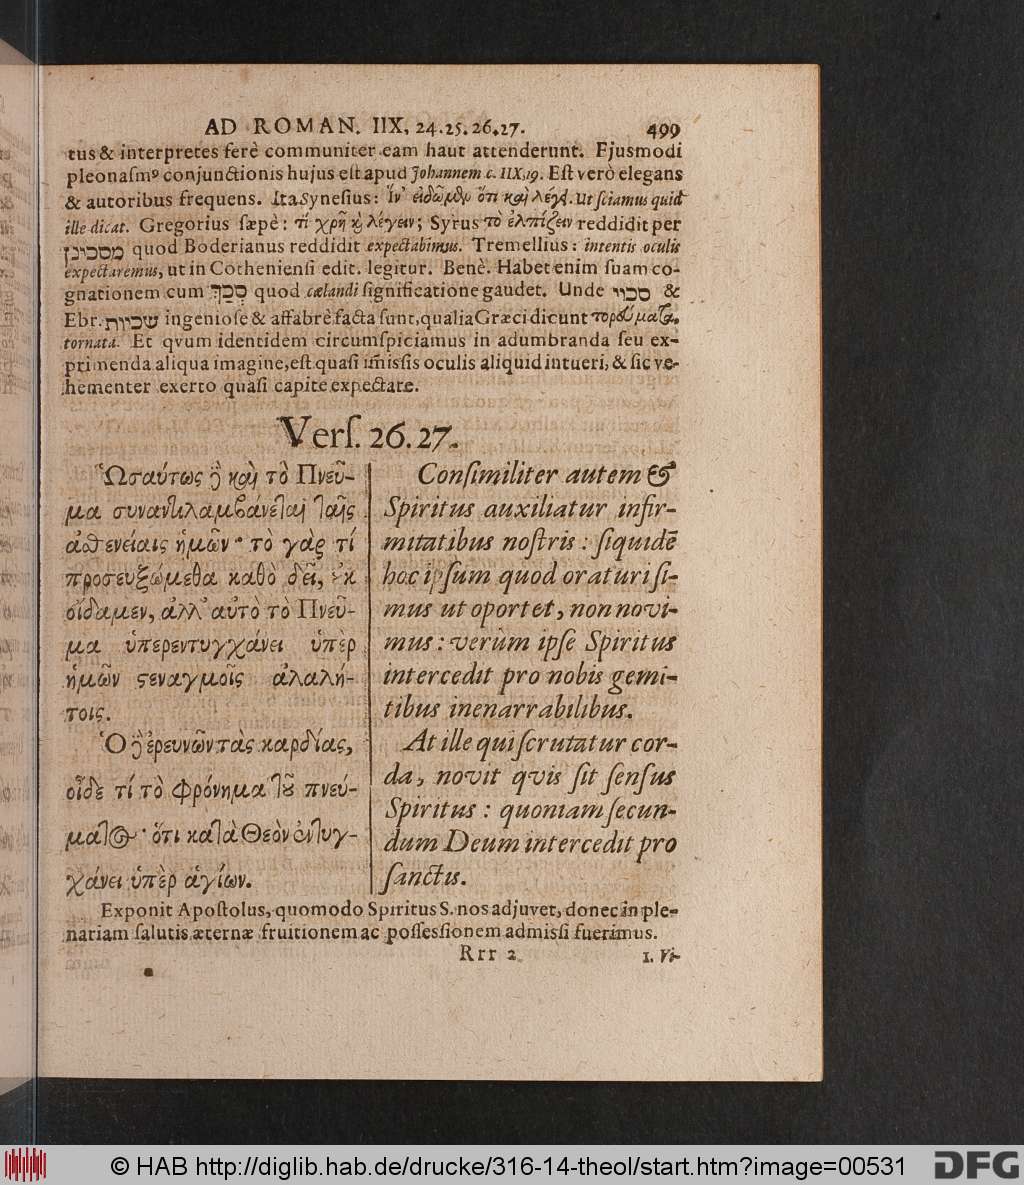 AD ROMAN. IIX, 24.25.26.27. 499
tus & interpretes ferè communiter eam haut attenderunt. Ejusmodi
pleonasmꝰ conjunctionis hujus est apud Johannem c. IIX,19. Est verò elegans
& autoribus frequens. Ita Synesius: Ἵν' εἰδῶμεν ὅτι καὶ λέγει. Ut sciamus quid
ille dicat. Gregorius sæpè: τί χρὴ καὶ λέγειν; Syrus τὸ ἐλπίζειν reddidit per
מסכינן quod Boderianus reddidit expectabimus. Tremellius: intentis oculis
expectaremus, ut in Cotheniensi edit. legitur. Benè. Habet enim suam co-
gnationem cum סכך quod cælandi significatione gaudet. Unde סכוי &
Ebr. שכיות ingeniose & affabrè facta sunt, qualia Græci dicunt τορεύματα.
tornata. Et qvum identidem circumspiciamus in adumbranda seu ex-
primenda aliqua imagine, est quasi im̃issis oculis aliquid intueri, & sic ve-
hementer exerto quasi capite expectare.
Vers. 26.27.
Ὡσαύτως δὲ καὶ τὸ Πνεῦ-
μα συναντιλαμβάνεται ταῖς
ἀσθενείαις ἡμῶν· τὸ γὰρ τί
προσευξώμεθα καθὸ δεῖ, οὐκ
οἴδαμεν, ἀλλ' αὐτὸ τὸ Πνεῦ-
μα ὑπερεντυγχάνει ὑπὲρ
ἡμῶν στεναγμοῖς ἀλαλή-
τοις.
Ὁ δὲ ἐρευνῶν τὰς καρδίας,
οἶδε τί τὸ φρόνημα τοῦ πνεύ-
ματος· ὅτι κατὰ Θεὸν ἐντυγ-
χάνει ὑπὲρ ἁγίων.
Consimiliter autem &
Spiritus auxiliatur infir-
mitatibus nostris: siquidē
hoc ipsum quod oraturi si-
mus ut oportet, non novi-
mus: verùm ipse Spiritus
intercedit pro nobis gemi-
tibus inenarrabilibus.
At ille qui scrutatur cor-
da, novit qvis sit sensus
Spiritus: quoniam secun-
dum Deum intercedit pro
sanctis.
Exponit Apostolus, quomodo Spiritus S. nos adjuvet, donec in ple-
nariam salutis æternæ fruitionem ac possessionem admissi fuerimus.
Rrr 2 1. Vi-
© HAB http://diglib.hab.de/drucke/316-14-theol/start.htm?image=00531
DFG